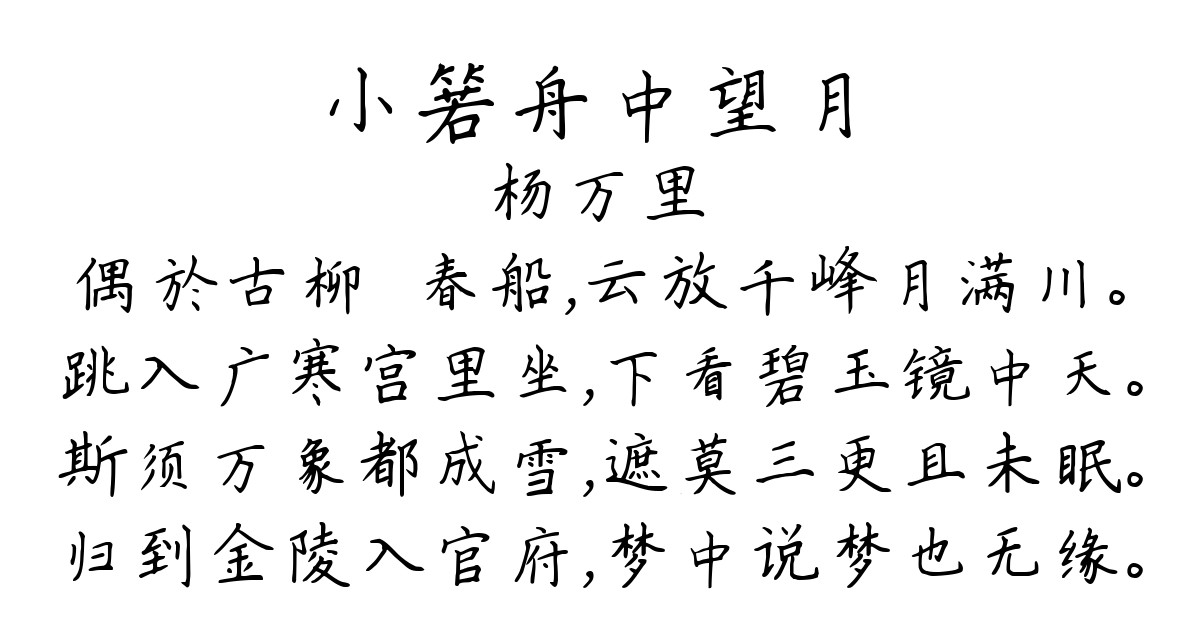 小箬舟中望月
杨万里
偶於古柳 春船,云放千峰月满川。
跳入广寒宫里坐,下看碧玉镜中天。
斯须万象都成雪,遮莫三更且未眠。
归到金陵入官府,梦中说梦也无缘。